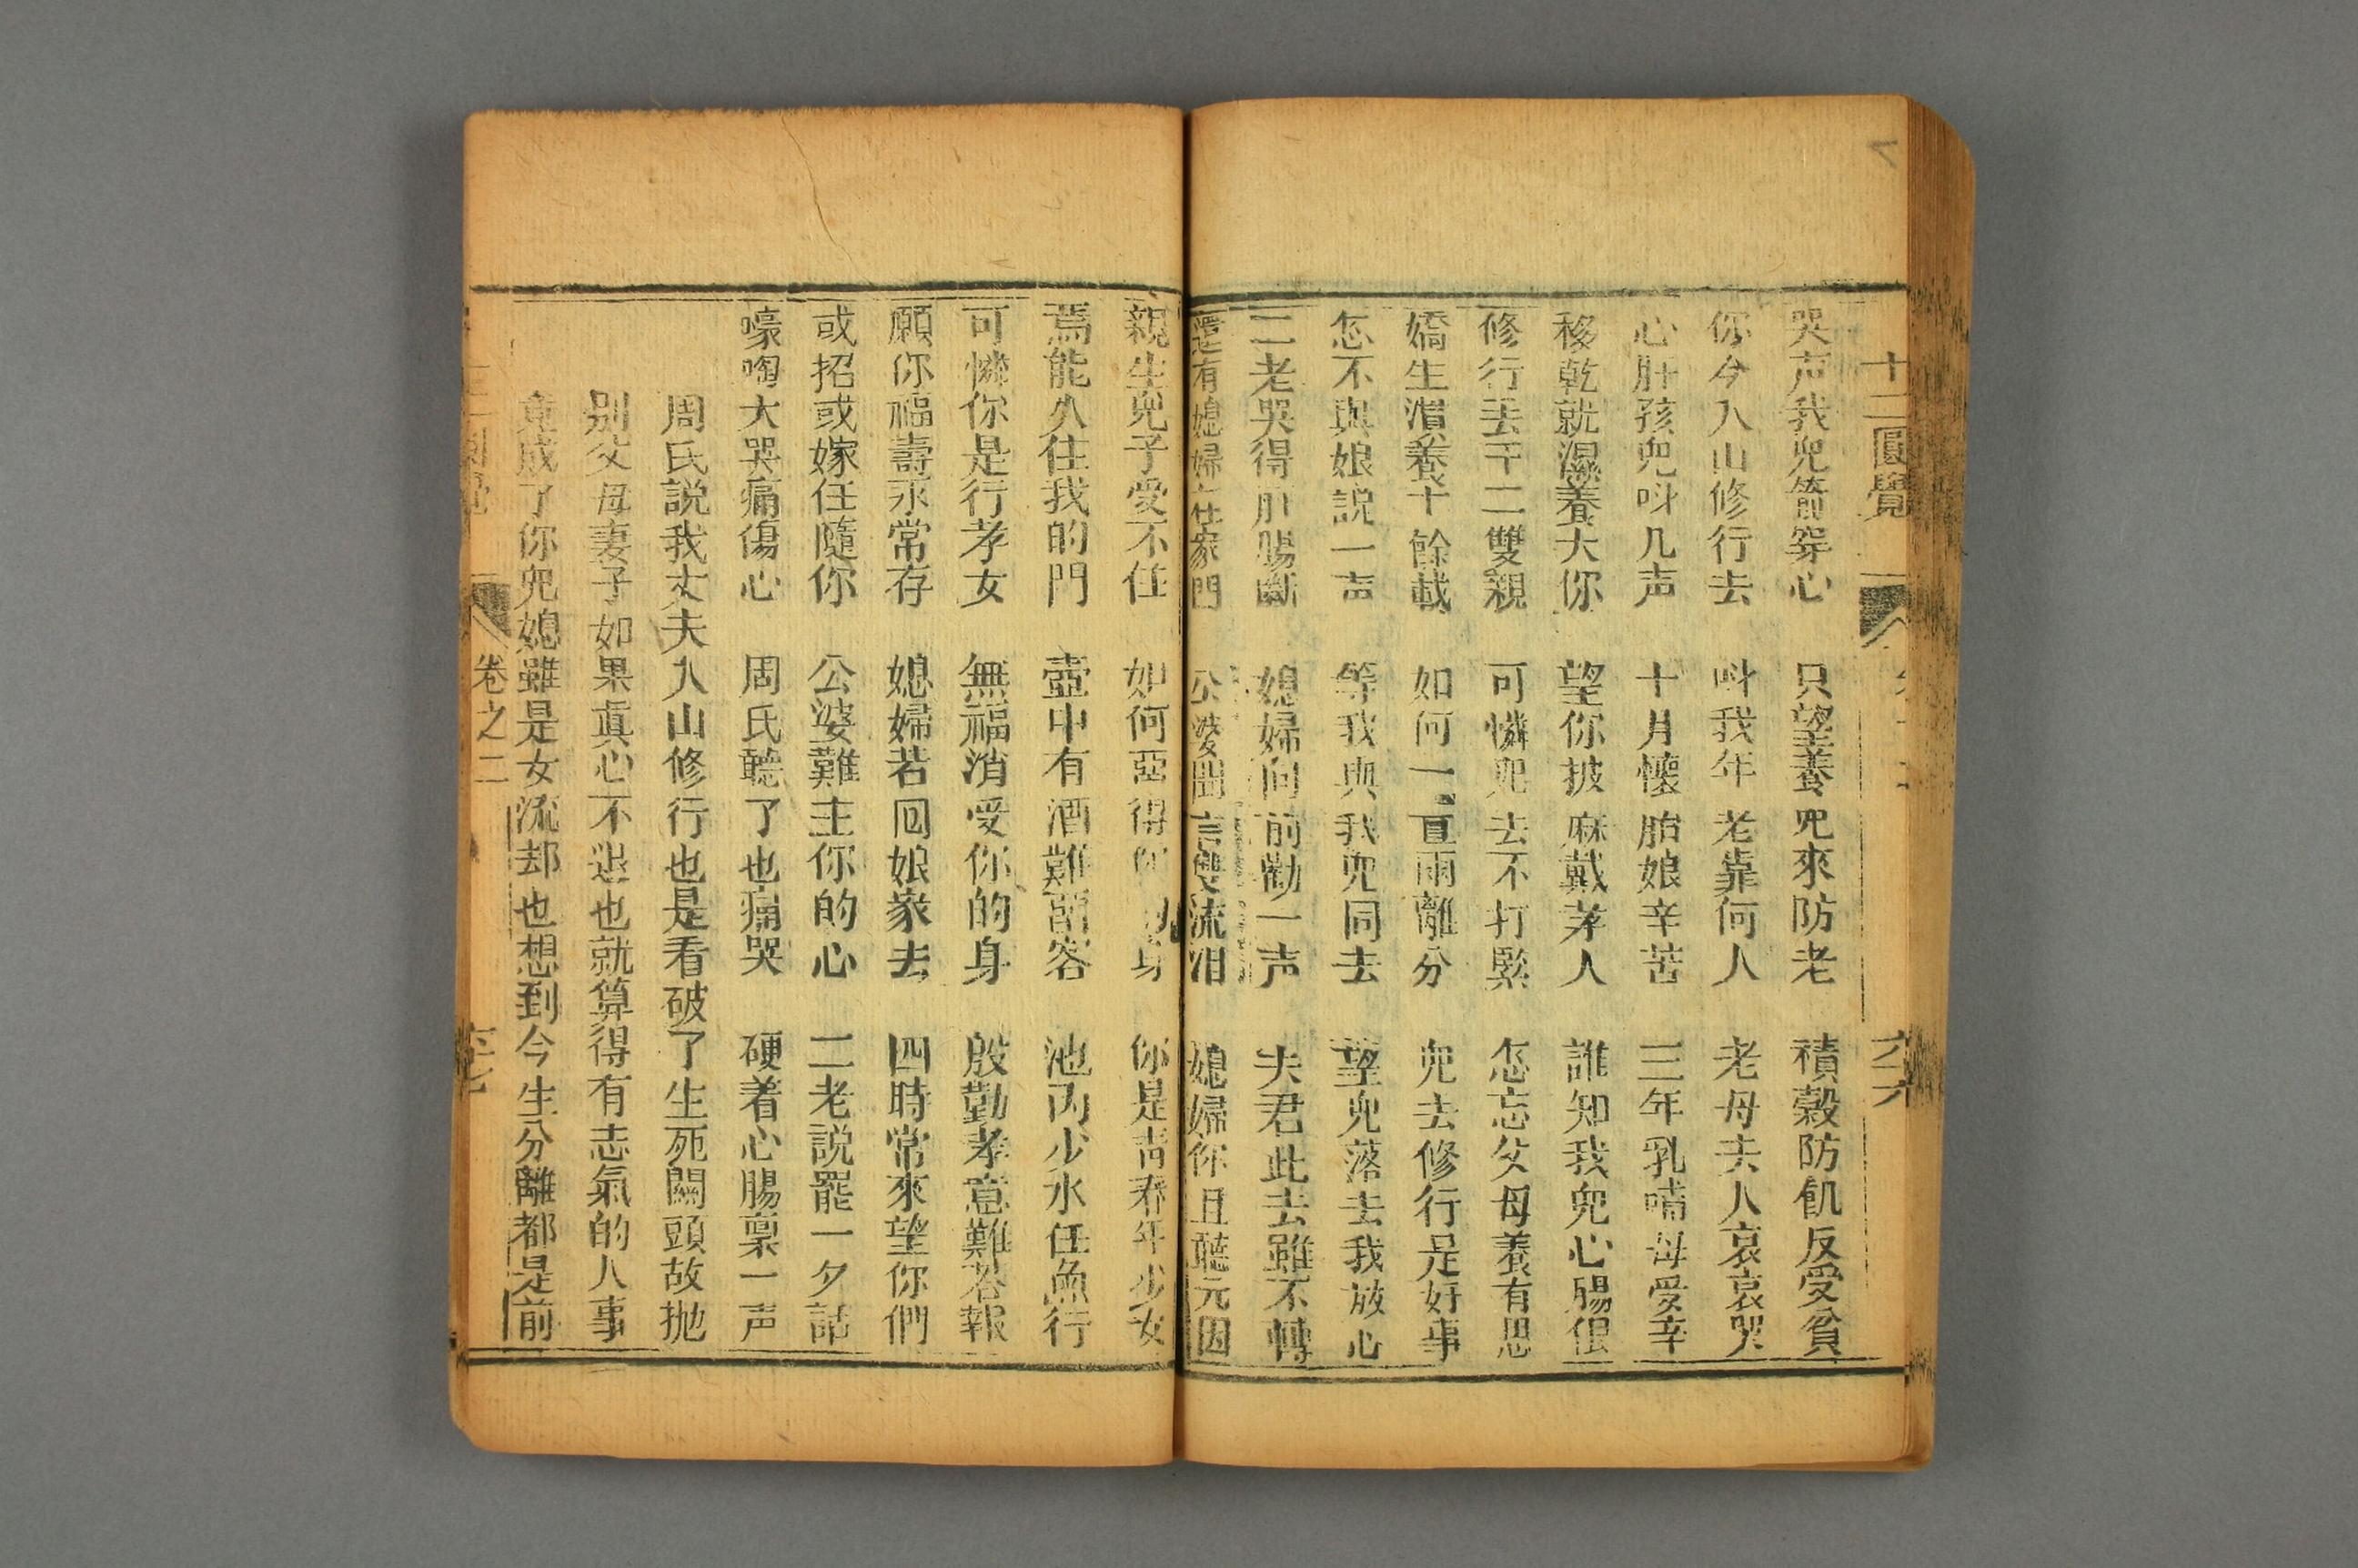 十二圓覺
六十六
哭声我兒箭穿心 只望養兒來防老 積穀防飢反受貧
你今入山修行去 呌我年老靠何人 老母夫人哀哀哭
心肝孩兒呌几声 十月懷胎娘辛苦 三年乳哺母受辛
移乾就濕養大你 望你披麻戴孝人 誰知我兒心腸佷
修行丢下二雙親 可憐兒去不打緊 怎忘父母養有恩
嬌生濳養十餘載 如何一亘兩離分 兒去修行是好事
怎不與娘説一声 等我與我兒同去 望兒落去我放心
二老哭得肝腸斷 媳婦向前勸一声 夫君此去雖不轉
還有媳婦在家門 公婆聞言雙流泪 媳婦你且聽元因
親生兒子受不住 如何惡得 身 你是青春年少女
焉能久住我的門 壺中有酒難畱客 池內少水任魚行
可憐你是行孝女 無福消受你的身 殷勤孝意難答報
願你福壽永常存 媳婦若回娘家去 四時常來望你們
或招或嫁任隨你 公婆難主你的心 二老説罷一夕話
嚎啕大哭痛傷心 周氏聽了也痛哭 硬着心腸稟一声
周氏説我丈夫入山修行也是看破了生死關頭故抛
别父母妻子如果真心不退也就算得有志氣的人事
竟成了你兒媳雖是女流却也想到今生分離都是前
卷之二